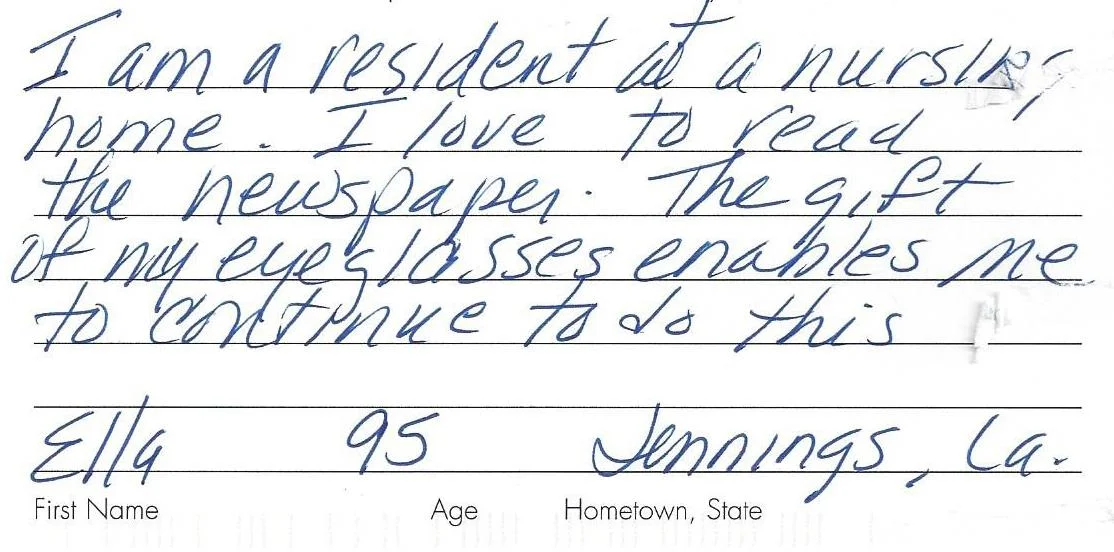 I am a resident at a nursing
home. I love to read
the newspaper. The gift
of my eyeglasses enables me
to continue to do this
Ella 95 Jennings, La.
First Name Age Hometown, State